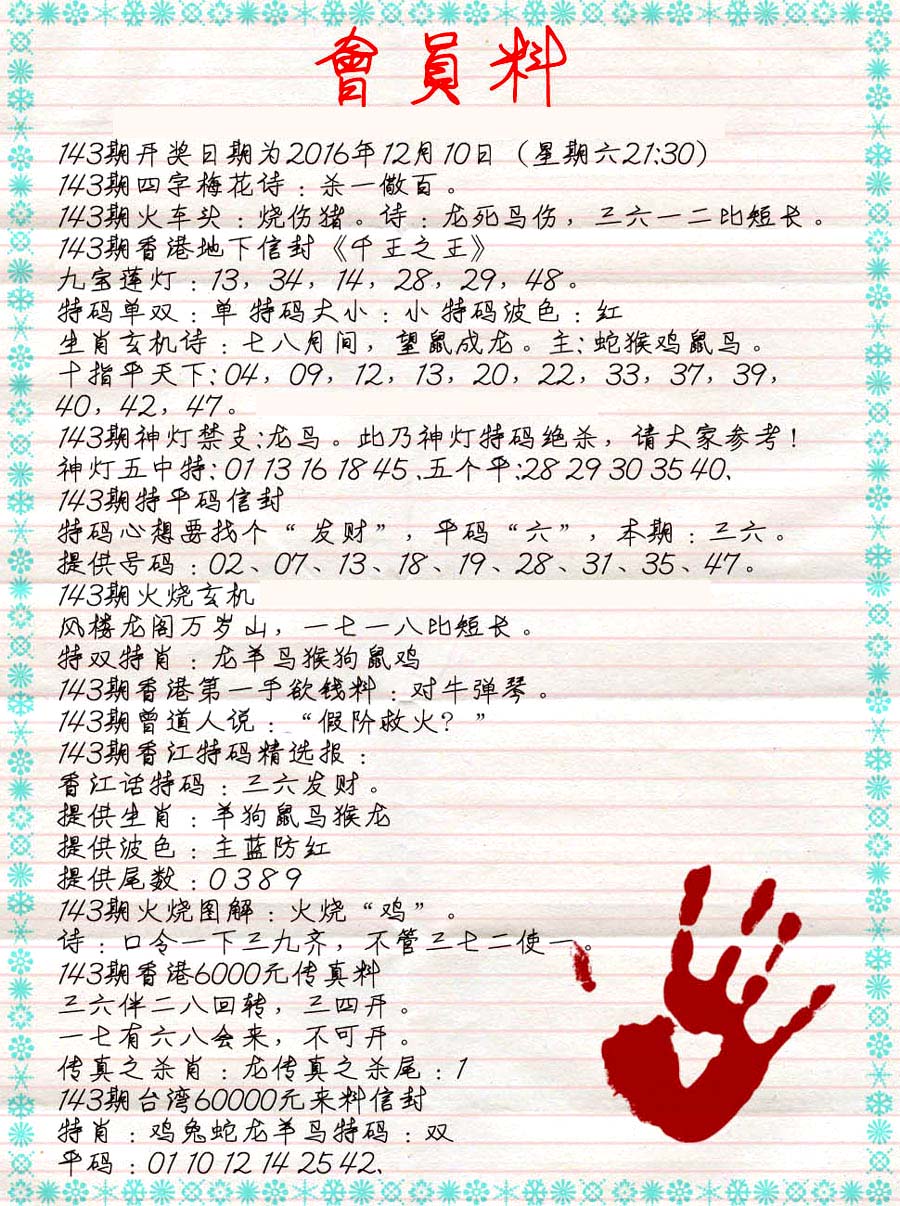 會員料
143期开奖日期为2016年12月10日（星期六21:30）
143期四字梅花诗：杀一儆百。
143期火车头：烧伤猪。诗：龙死鸟伤，三六一二比短长。
143期香港地下信封《千王之王》
九宝莲灯：13，34，14，28，29，48。
特码单双：单 特码大小：小 特码波色：红
生肖玄机诗：七八月间，望鼠成龙。主：蛇猴鸡鼠马。
十指平天下：04，09，12，13，20，22，33，37，39，
40，42，47。
143期神灯禁支:龙马。此乃神灯特码绝杀，请大家参考！
神灯五中特：01 13 16 18 45 、五个平:28 29 30 35 40、
143期特平码信封
特码心想要找个“发财”，平码“六”，本期：三六。
提供号码：02、07、13、18、19、28、31、35、47。
143期火烧玄机
风楼龙阁万岁山，一七一八比短长。
特双特肖：龙羊马猴狗鼠鸡
143期香港第一手欲钱料：对牛弹琴。
143期曾道人说：“假阶救火？”
143期香江特码精选报：
香江话特码：三六发财。
提供生肖：羊狗鼠马猴龙
提供波色：主蓝防红
提供尾数：0 3 8 9
143期火烧图解：火烧“鸡”。
诗：口令一下三九齐，不管三七二使一。
143期香港6000元传真料
三六伴二八回转，三四开。
一七有六八会来，不可开。
传真之杀肖：龙传真之杀尾：1
143期台湾60000元来料信封
特肖：鸡兔蛇龙羊马特码：双
平码：01 10 12 14 25 42、